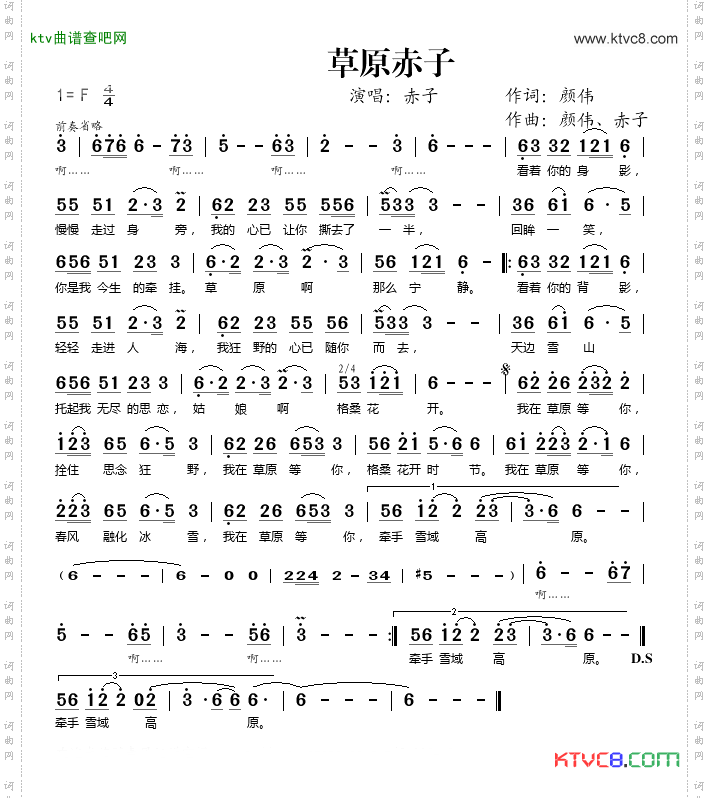 ktv曲谱查吧网
www.ktvc8.com
草原赤子
1=F 4/4
演唱：赤子
作词：颜伟
作曲：颜伟、赤子
前奏省略
3 | 6 7 6 6 - 7 3 | 5 - - 6 3 | 2 - - 3 | 6 - - - | 6 3 3 2 1 2 1 6 |
啊…… 啊…… 啊…… 啊…… 看着 你的 身 影，
5 5 5 1 2·3 2 | 6 2 2 3 5 5 5 5 6 | 5 3 3 3 - - | 3 6 6 1 6·5 |
慢慢 走过 身 旁， 我的 心已 让你 撕去了 一 半， 回眸 一 笑，
6 5 6 5 1 2 3 3 | 6·2 2·3 2·3 | 5 5 1 2 1 6 - |: 6 3 3 2 1 2 1 6 |
你是我 今生 的牵 挂。 草 原 啊 那么 宁 静。 看着 你的 背 影，
5 5 5 1 2·3 2 | 6 2 2 3 5 5 5 6 | 5 3 3 3 - - | 3 6 6 1 6·5 |
轻轻 走进 人 海， 我狂 野的 心已 随你 而 去， 天边 雪 山
2/4
6 5 6 5 1 2 3 3 | 6·2 2·3 2·3 | 5 3 1 2 1 | 6 - - - | 6 2 2 6 2 3 2 2 |
托起我 无尽 的思 恋， 姑 娘 啊 格桑 花 开。 我在 草原 等 你，
1 2 3 6 5 6·5 3 | 6 2 2 6 6 5 3 3 | 5 6 2 1 5·6 6 | 6 1 2 2 3 2·1 6 |
拴住 思念 狂 野， 我在 草原 等 你， 格桑 花开 时 节。 我在 草原 等 你，
1
2 2 3 6 5 6·5 3 | 6 2 2 6 6 5 3 3 | 5 6 1 2 2 2 3 | 3·6 6 - - |
春风 融化 冰 雪， 我在 草原 等 你， 牵手 雪域 高 原。
(6 - - - | 6 - 0 0 | 2 2 4 2 - 3 4 | #5 - - - ) | 6 - - 6 7 |
啊……
2
5 - - 6 5 | 3 - - 5 6 | 3 - - - :| 5 6 1 2 2 2 3 | 3·6 6 - - ||
啊…… 啊…… 牵手 雪域 高 原。 D.S
3
5 6 1 2 2 0 2 | 3 - 6 6 6· | 6 - - - |
牵手 雪域 高 原。
KTVC8.COM